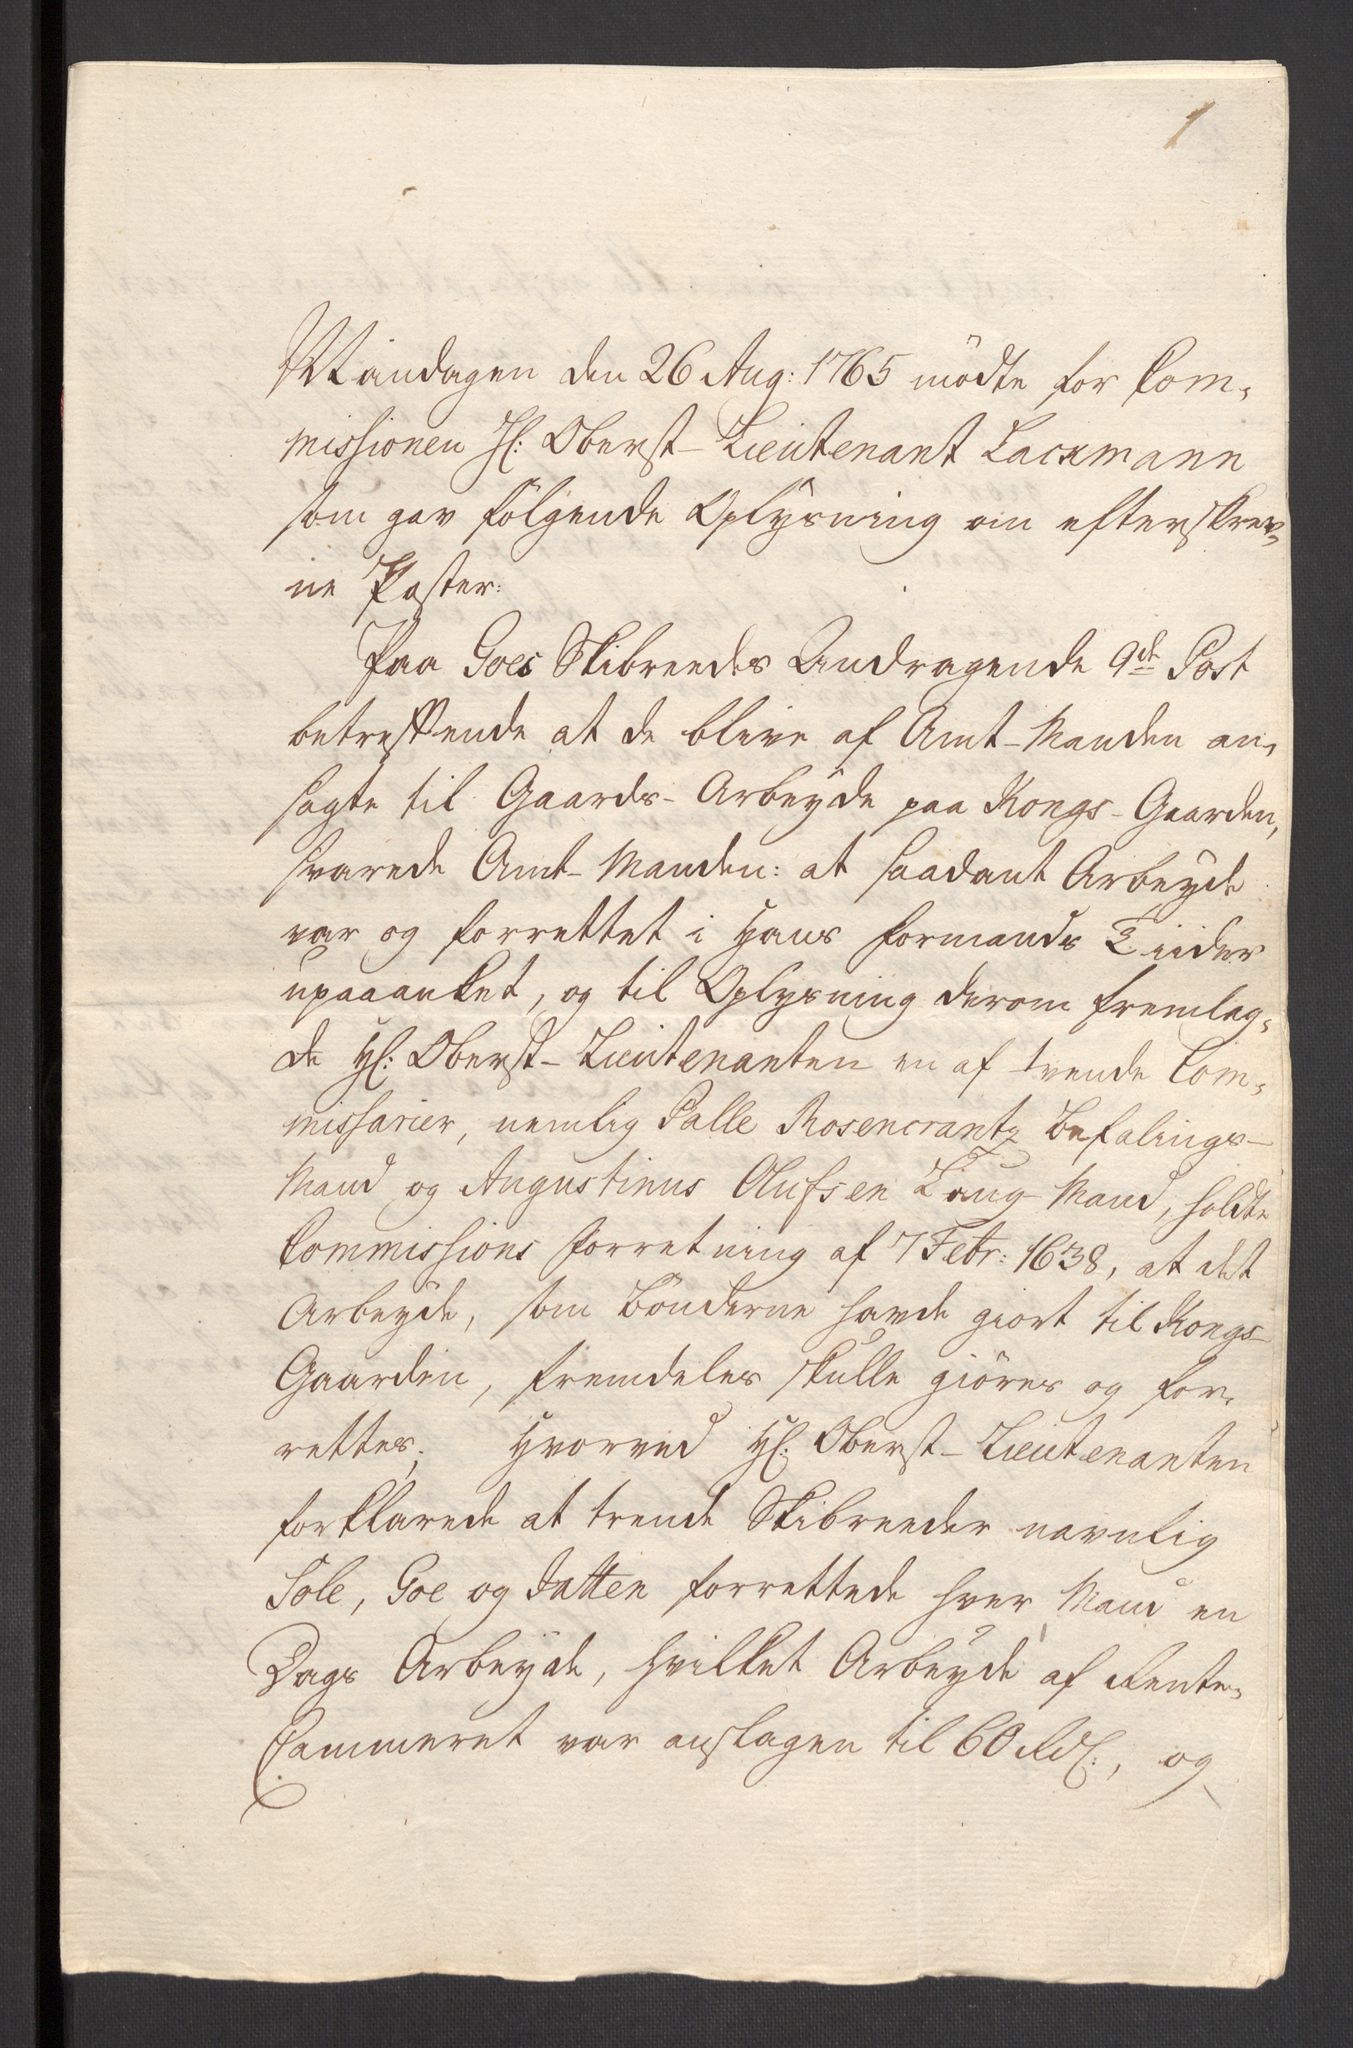 1
Mandagen den 26 Aug: 1765 mödte for Com-
missionen Hl: Oberst-Lieutenant Lackmann
som gav fölgende Oplysning om efterskrev-
ne Poster:
Paa Goes Skibreedes Andragende 9de Post
betreffende at de blive af Amt-Manden an-
sagte til Gaards-Arbeyde paa Kongs-Gaarden,
svarede Amt-Manden: at saadant Arbeyde
var og forrettet i Hans Formands Tiider
upaaanket, og til Oplysning derom fremlag-
de Hl: Oberst-Lieutenanten en af tvende Com-
missarier, nemlig Palle Rosencrantz Befalings-
Mand og Augustinus Olufsen Laug-Mand, holdte
Commissions Forretning af 7 Febr: 1638, at det
Arbeyde, som Bönderne havde giort til Kongs-
Gaarden, fremdeles skulle giöres og for-
rettes. Hvorved Hl: Oberst-Lieutenanten
forklarede at trende Skibreeder navnlig
Sole, Goe og Jatten forrettede hver Mand en
Dags Arbeyde, hvilket Arbeyde af Rente-
Cammeret var anslagen til 60 Rdl:, og